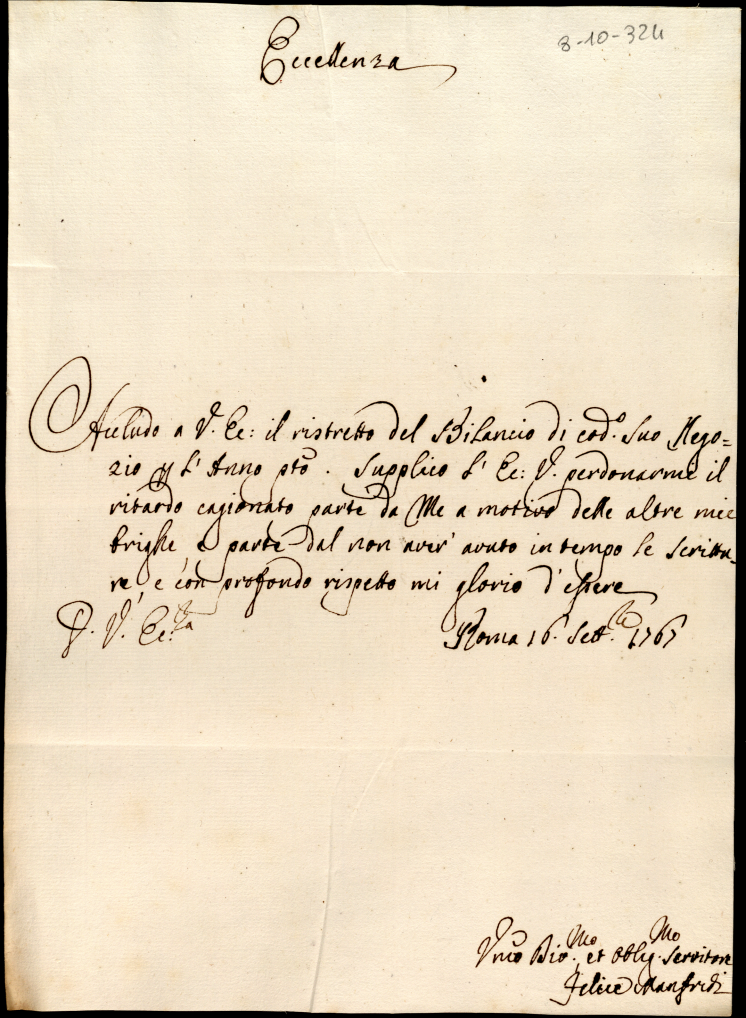 8-10-324
Eccellenza
Accludo a V. Ec: il ristretto del Bilancio di cod.º Suo Nego=
zio p l'Anno pto. Supplico l'Ec: V. perdonarmi il
ritardo cagionato parte da Me a motivo delle altre mie
brighe, e parte dal non aver' avuto in tempo le Scrittu-
re, e con profondo rispetto mi glorio d'essere
D. V. Ec.za
Roma 16. Sett.bre 1767
Dio.Mo et Obblig.Mo Servitore
Felice Manfridi